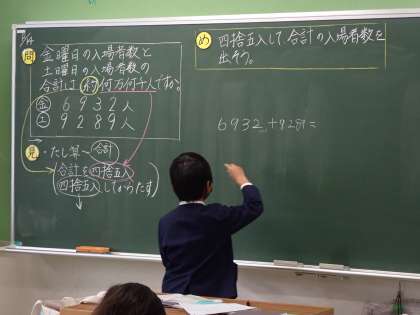 問
金曜日の入場者数と
土曜日の入場者数の
合計は約何万何千人ですか。
金 6932人
土 9289人
見 ・たし算〜合計
合計を四捨五入
四捨五入してからたす
め 四捨五入して、合計の入場者数を
出そう。
6932+9289=